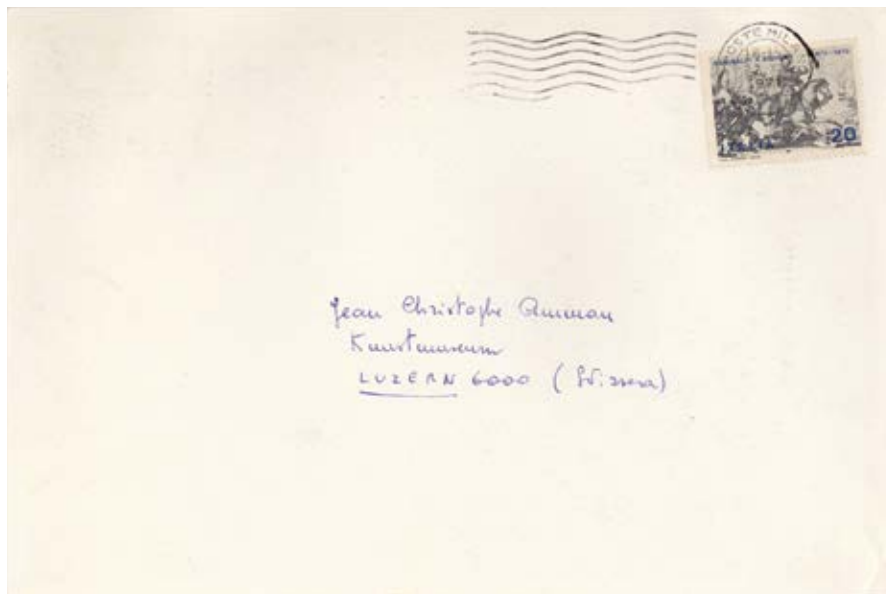 POSTE MILANO
ITALIA 20
Jean Christophe Amman
Kunstmuseum
LUZERN 6000 (Svizzera)